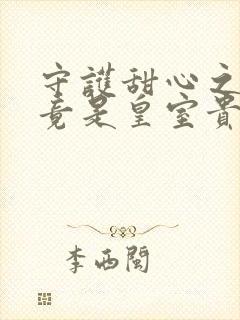 守護甜心之
竟是皇室貴
李西閩